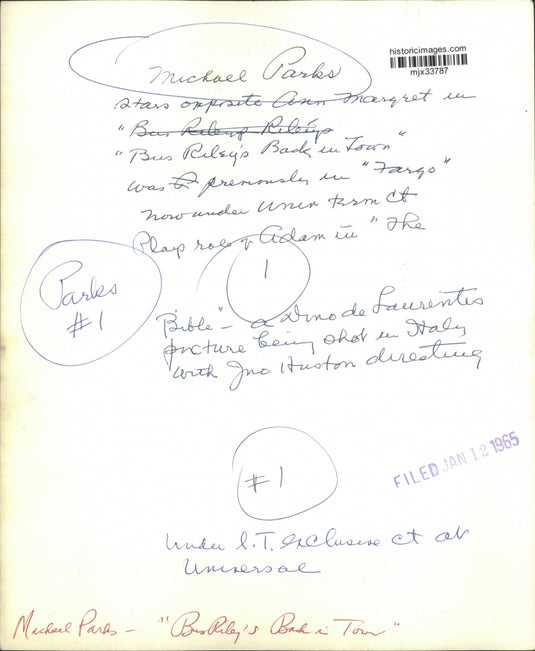 historicimages.com
mjx33787
Michael Parks
stars opposite Ann Margret in
"Bus Riley's
"Bus Riley's Back in Town"
was previously in "Fargo"
now under Univ term ct
Plays role of Adam in "The
1
Parks
#1
Bible" - a Dino de Laurentis
picture being shot in Italy
with Jno Huston directing
#1
FILED JAN 12 1965
Under L.T. exclusive ct at
Universal
Michael Parks - "Bus Riley's Back in Town"